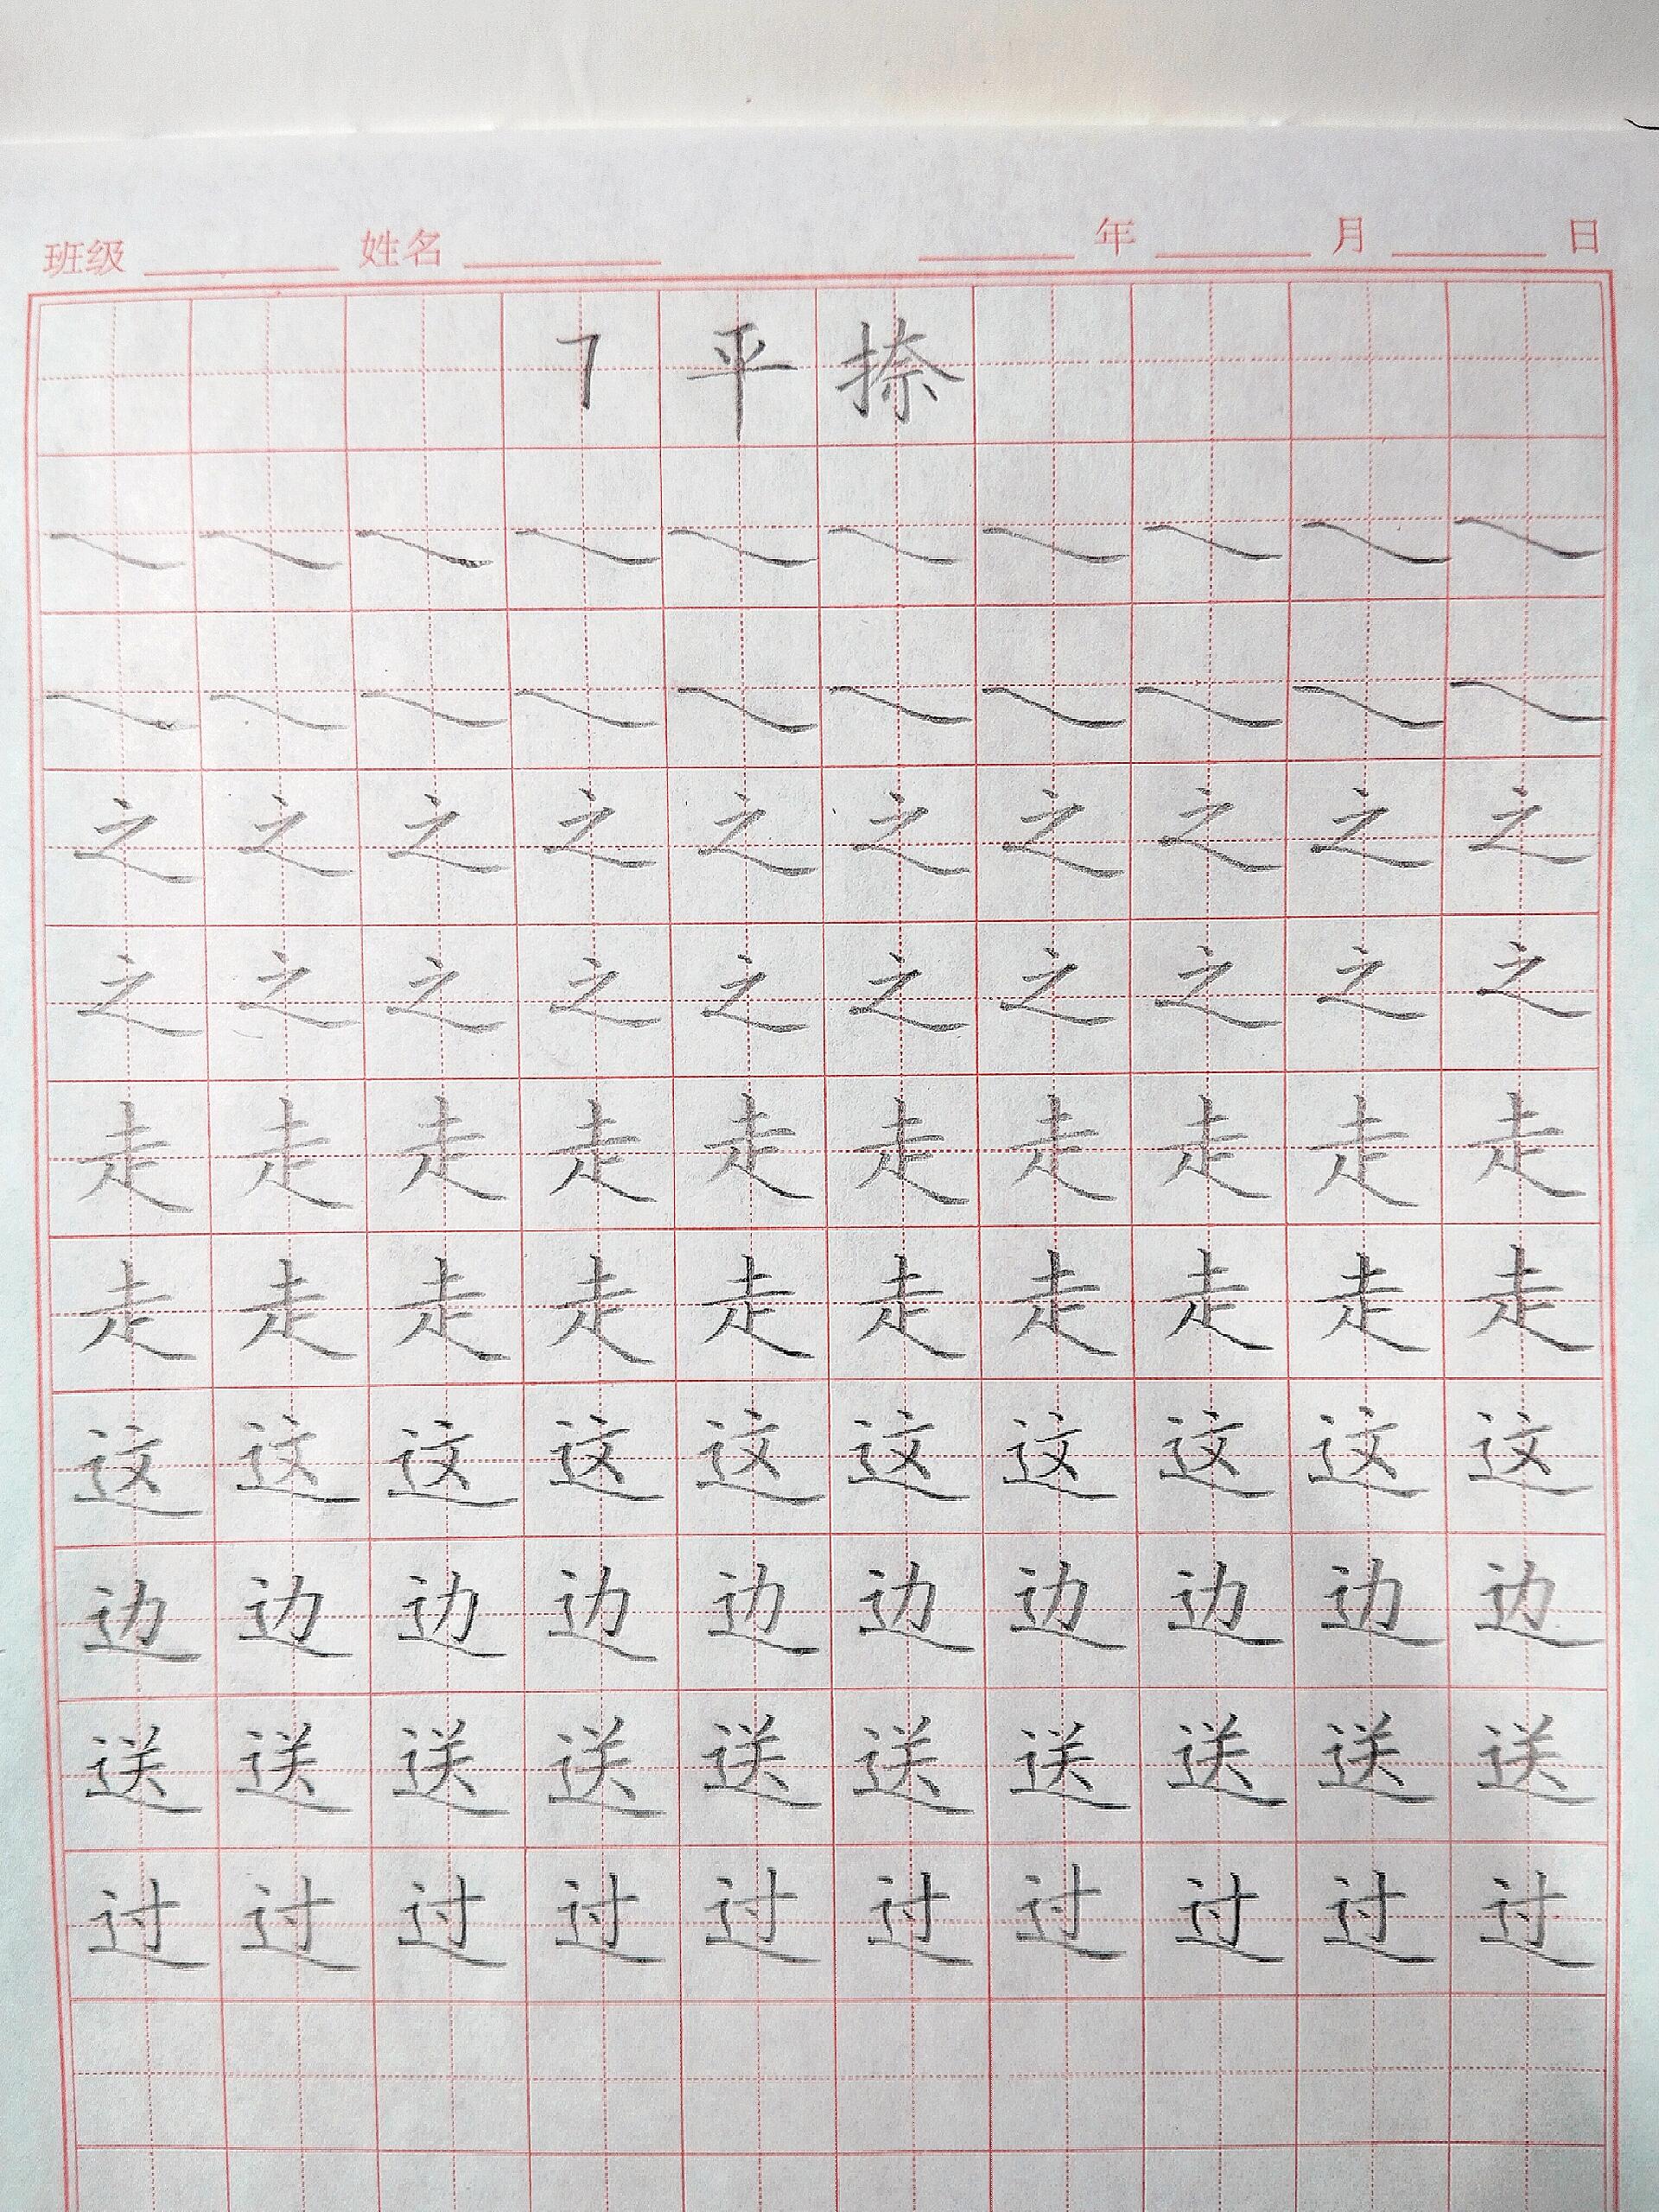 班级 姓名 年 月 日
7 平 捺
之 之 之 之 之 之 之 之 之 之
之 之 之 之 之 之 之 之 之 之
走 走 走 走 走 走 走 走 走 走
走 走 走 走 走 走 走 走 走 走
这 这 这 这 这 这 这 这 这 这
边 边 边 边 边 边 边 边 边 边
送 送 送 送 送 送 送 送 送 送
过 过 过 过 过 过 过 过 过 过